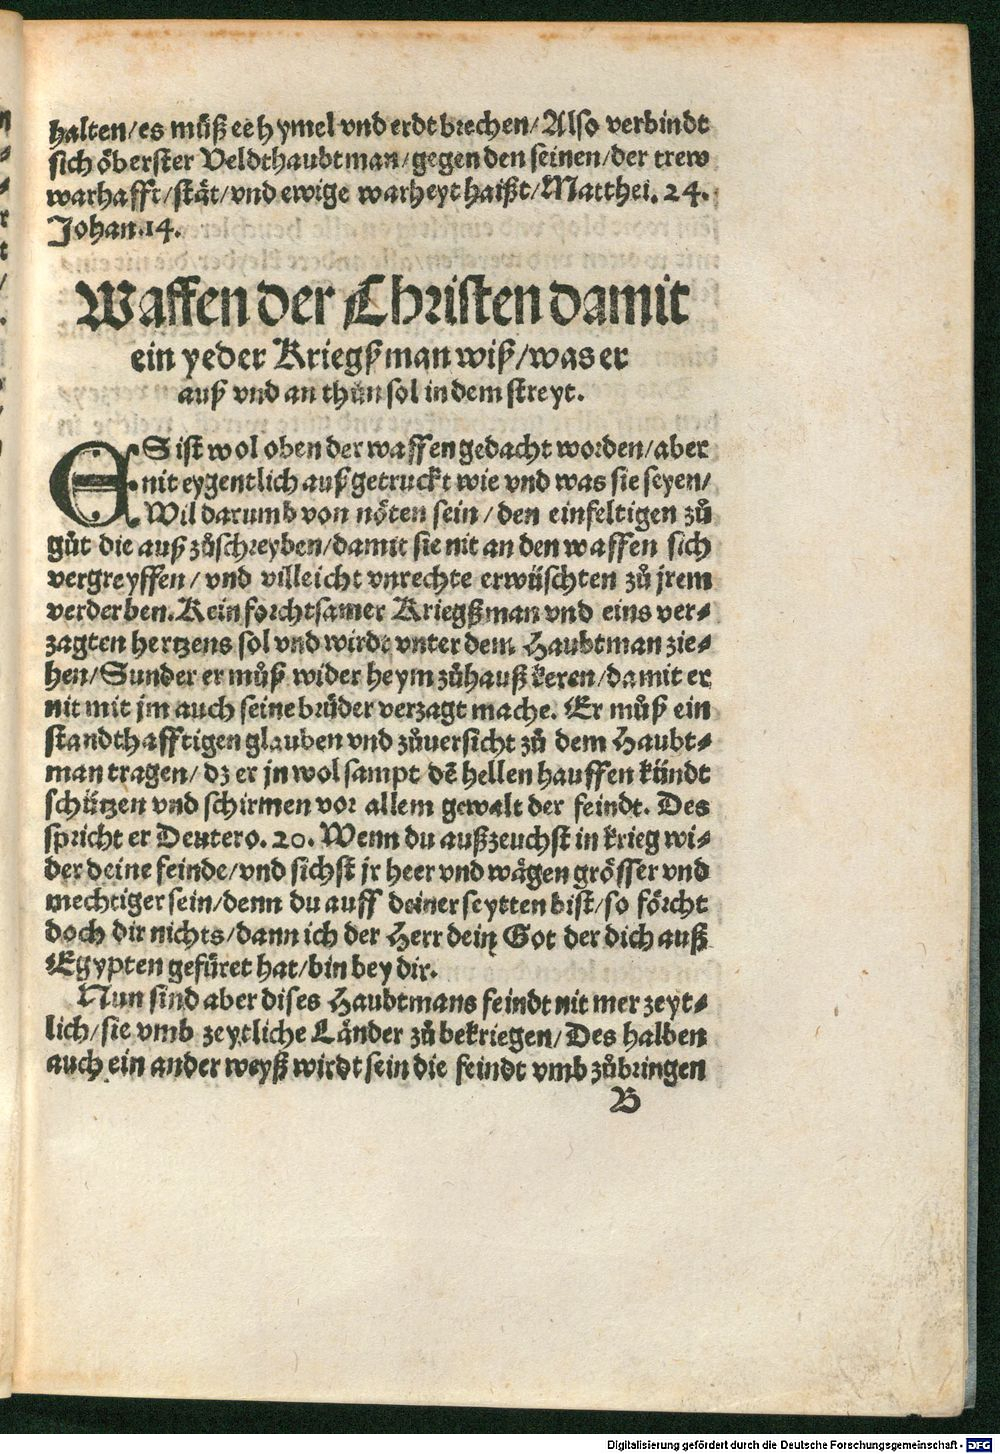 halten/es můß ee hymel vnd erdt brechen/Also verbindt
sich öberster Veldthaubtman/gegen den seinen/der trew
warhafft/stät/vnd ewige warheyt haißt/Matthei. 24.
Johan.14.
Waffen der Christen damit
ein yeder Kriegßman wiß/was er
auß vnd an thůn sol in dem streyt.
ES ist wol oben der waffen gedacht worden/aber
nit eygentlich außgetruckt wie vnd was sie seyen/
Wil darumb von nöten sein/den einfeltigen zů
gůt die auß zůschreyben/damit sie nit an den waffen sich
vergreyffen/vnd villeicht vnrechte erwüschten zů jrem
verderben. Kein forchtsamer Kriegßman vnd eins ver⸗
zagten hertzens sol vnd wirdt vnter dem Haubtman zie⸗
hen/Sunder er můß wider heym zůhauß keren/damit er
nit mit jm auch seine brüder verzagt mache. Er můß ein
standthafftigen glauben vnd zůuersicht zů dem Haubt⸗
man tragen/dz er jn wol sampt dē hellen hauffen kündt
schützen vnd schirmen vor allem gewalt der feindt. Des
spricht er Deutero. 20. Wenn du außzeuchst in krieg wi⸗
der deine feinde/vnd sichst jr heer vnd wägen grösser vnd
mechtiger sein/denn du auff deiner seytten bist/so förcht
doch dir nichts/dann ich der Herr dein Got der dich auß
Egypten gefüret hat/bin bey dir.
Nun sind aber dises Haubtmans feindt nit mer zeyt⸗
lich/sie vmb zeytliche Länder zů bekriegen/Des halben
auch ein ander weyß wirdt sein die feindt vmb zůbringen
B
Digitalisierung gefördert durch die Deutsche Forschungsgemeinschaft - DFG